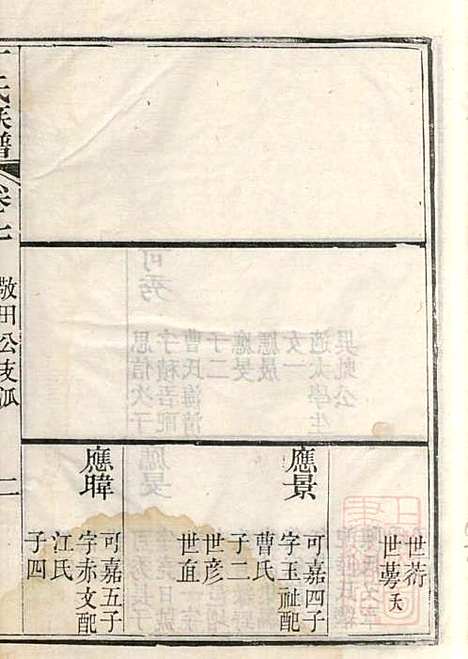 世䓲
世蕚夭
應景
可嘉四子
字玉祉配
曹氏
子二
世彦
世直
應暐
可嘉五子
字赤文配
江氏
子四
氏族譜
卷七
敬田公支派
二